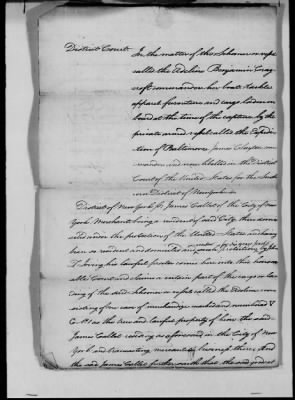 District Court
In the matter of the Schooner or vessel
called the Adeline Benjamin Cray
croft commander her boat tackle
apparel furniture and cargo laden on
board at the time of the capture by the
private armed vessel called the Expedi
tion of Baltimore James Clayton com
mander and now libelled in the District
Court of the United States for the South
ern District of New York
District of New York James Callet of the City of New
York Merchant being a resident of said City then domi
ciled under the protection of the United States and having
been so resident and domiciled
his lawful proctor come here into this honor
able Court and claims a certain part of the cargo or lad
ing of the said Schooner or vessel called the Adeline con
sisting of one case of merchandize marked and numbered
G. No 1 as the true and lawful property of him the said
James Callet residing as aforesaid in the City of New
York and transacting mercantile business there And
the said James Callet further saith that the said goods